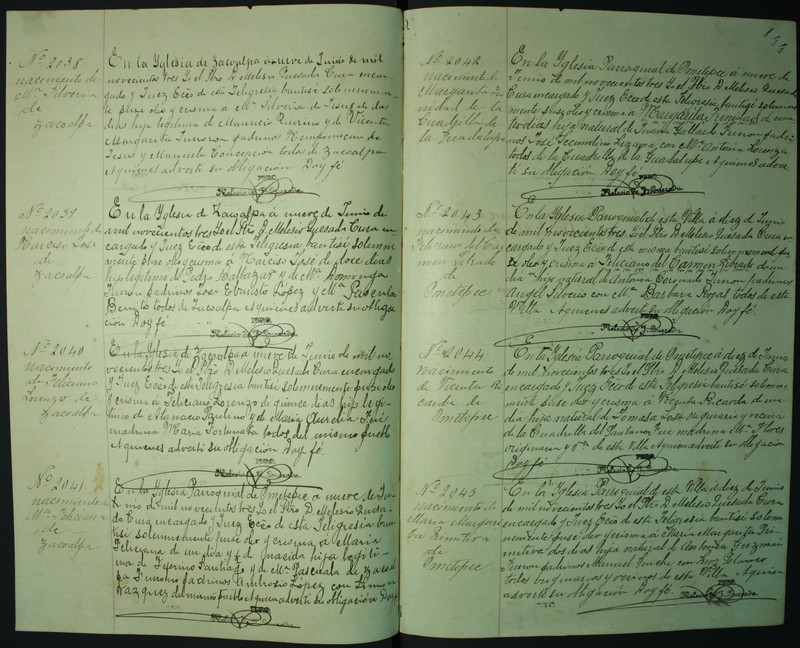 Nº 2038
nacimiento de
Mª Silveria
de
Zacoalpa
En la Yglesia de Zacoalpa á nueve de Junio de mil
novecientos tres Yo el Pbro D Melesio Quesada Cura encar
gado y Juez Ecco de esta Feligresia bautisé solemnemen-
te puse oleo y crisma a Mª Silveria de Jesus de dos
dias hija legitima de Mauricio y de Vicenta
Margarita fueron padrinos Nempomuceno de
Jesus y Manuela Concepción todos de Zacoalpa
A quienes adverti su obligación Doy fé
Nº 2039
nacimiento de
Narciso José
de
Zacoalpa
En la Yglesia de Zacoalpa á nueve de Junio de
mil novecientos tres Yo el Pbro D Melesio Quesada Cura en
cargado y Juez Ecco de esta Feligresia bautisé solemne
mente puse oleo y crisma á Narciso José de doce dias
hijo legitimo de Pedro Baltazar y de Mª Dominga
fueron padrinos José Ebaristo López y Mª Pascuala
Benito todos de Zacoalpa A quienes adverti su obliga
ción Doy fé
Nº 2040
nacimiento
de Feliciano
Lorenzo de
Zacoalpa
En la Yglesia de Zacoalpa á nueve de Junio de mil no
vecientos tres Yo el Pbro D Melesio Quesada Cura encargado
y Juez Ecco de esta Feligresia bautisé solemnemente puse oleo
y crisma á Feliciano Lorenzo de quince dias hijo legi
timo de Atanacio Paulino y de Maria Aurelia fué
madrina Maria Fortunata todos del mismo pueblo
A quienes adverti su obligación Doy fé
Nº 2041
nacimiento de
Mª Feliciana
de
Zacoalpa
En la Yglesia Parroquial de Ometepec á nueve de Ju-
nio de mil novecientos tres Yo el Pbro D Melesio Quesa-
da Cura encargado y Juez Ecco de esta Feligresia bau
tisé solemnemente puse oleo y crisma á Maria
Feliciana de un dia de nacida hija legiti-
ma de Fermin Santiago y de Mª Pascuala de Zacoal
pa fueron padrinos Ambrosio López con
Vazquez del mismo pueblo A quienes adverti su obligación Doy fé
Nº 2042
nacimiento de
Margarita Tri
nidad de la
Cuadrilla de
la Guadalupe
En la Yglesia Parroquial de Ometepec á nueve de
Junio de mil novecientos tres Yo el Pbro D Melesio Quesada
Cura encargado y Juez Ecco de esta Feligresia bautisé solemne
mente puse oleo y crisma á Margarita Trinidad de cua
tro dias hija natural de Juana Gallardo fueron padri
nos José Secundino Lizama con Mª Antonia Lorenza
todos de la Cuadrilla de la Guadalupe A quienes adver
ti su obligación Doy fé
Nº 2043
nacimiento de
Feliciano del Car
men Librado
de
Ometepec
En la Yglesia Parroquial de esta Villa á diez de Junio
de mil novecientos tres Yo el Pbro D Melesio Quesada Cura en
cargado y Juez Ecco de esta misma bautisé solemnemente pu
se oleo y crisma á Feliciano del Carmen Librado de un
dia hijo natural de Antonia Coronado fueron padrinos
Angel Silverio con Mª Barbara Rojas todos de esta
Villa A quienes adverti su obligación Doy fé
Nº 2044
nacimiento
de Vicenta Ri
carda de
Ometepec
En la Yglesia Parroquial de Ometepec á diez de Junio
de mil novecientos tres Yo el Pbro D Melesio Quesada Cura
encargado y Juez Ecco de esta Feligresia bautisé solemne
mente puse oleo y crisma á Vicenta Ricarda de un
dia hija natural de Tomasa José originaria y vecina
de la Cuadrilla del Pantano fué madrina Mª Flores
originaria y vª de esta Villa A quien adverti su obligación
Doy fé
Nº 2045
nacimiento de
Maria Margari
ta Primitiva
de
Ometepec
En la Yglesia Parroquial de esta Villa á diez de Junio
de mil novecientos tres Yo el Pbro D Melesio Quesada Cura
encargado y Juez Ecco de esta Feligresia bautisé solem
nemente puse oleo y crisma á Maria Margarita Pri
mitiva dos dias hija natural de Antonia Guzman
fueron padrinos Manuel con Luz Polanco
todos originarios y vecinos de esta Villa A quienes
adverti su obligación Doy fé.